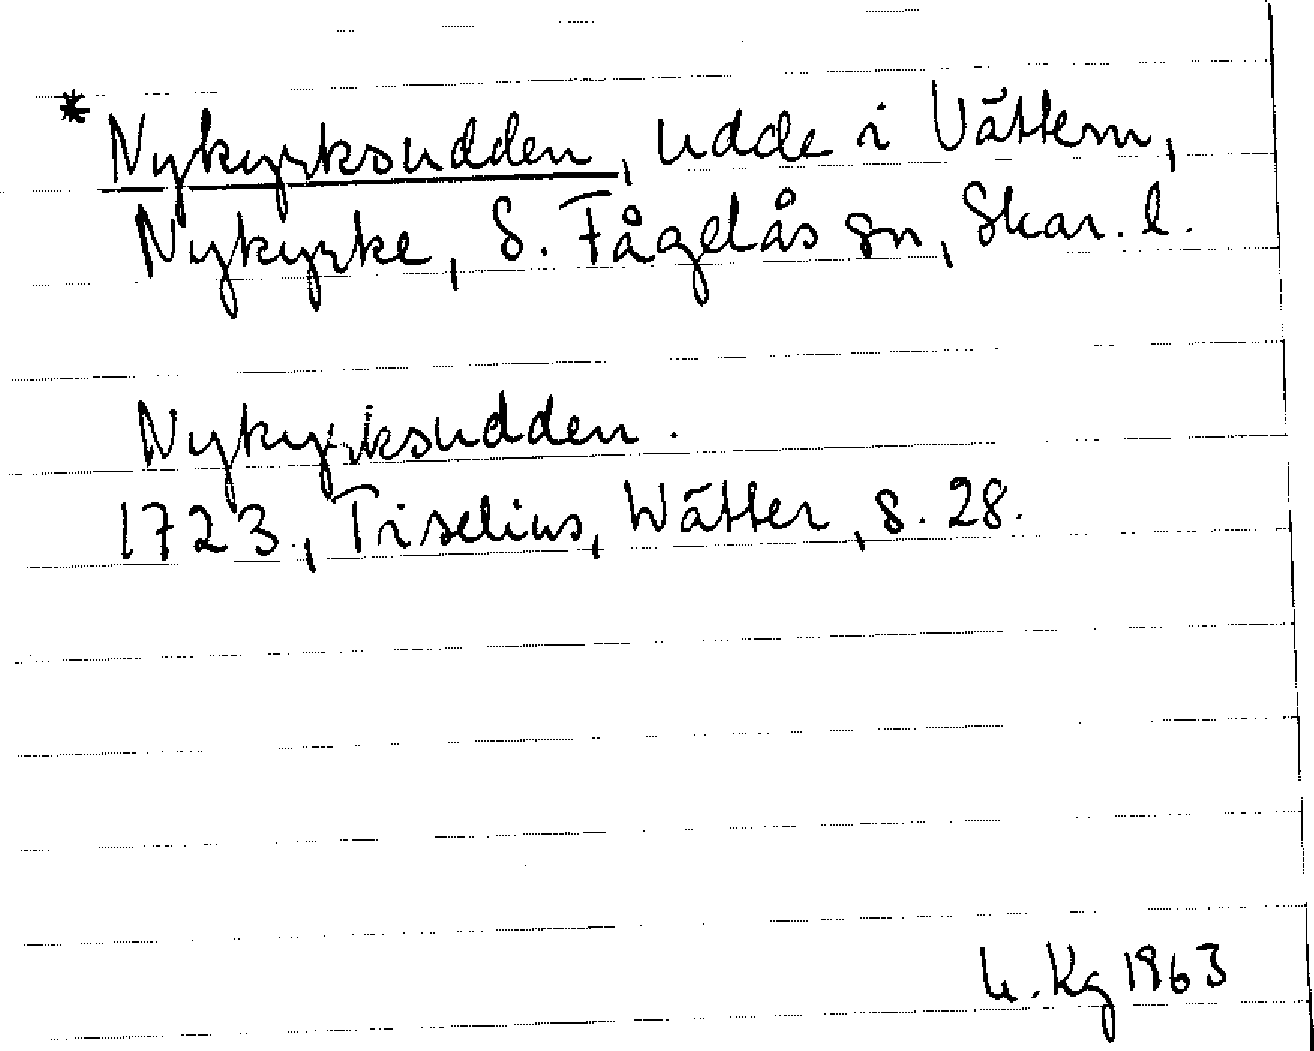 * Nykyrksudden, udde i Vättern,
Nykyrke, S. Fågelås sn, Skar. l.
Nykyrksudden.
1723, Tiselius, Wätter, s. 28.
Kg 1963